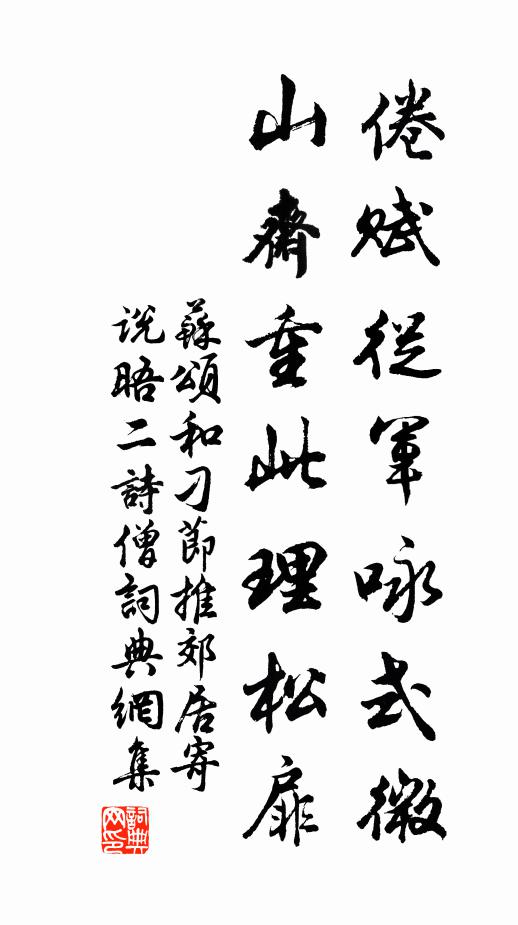 倦賦從軍咏式微
山齋重此理松扉
蘇頌和刁節推郊居寄
説晤二詩僧詞典網集
詞典网印